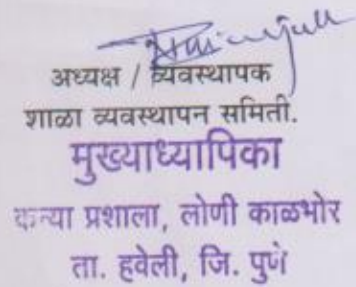 अध्यक्ष / व्यवस्थापक
शाळा व्यवस्थापन समिती.
मुख्याध्यापिका
कन्या प्रशाला, लोणी काळभोर
ता. हवेली, जि. पुणे